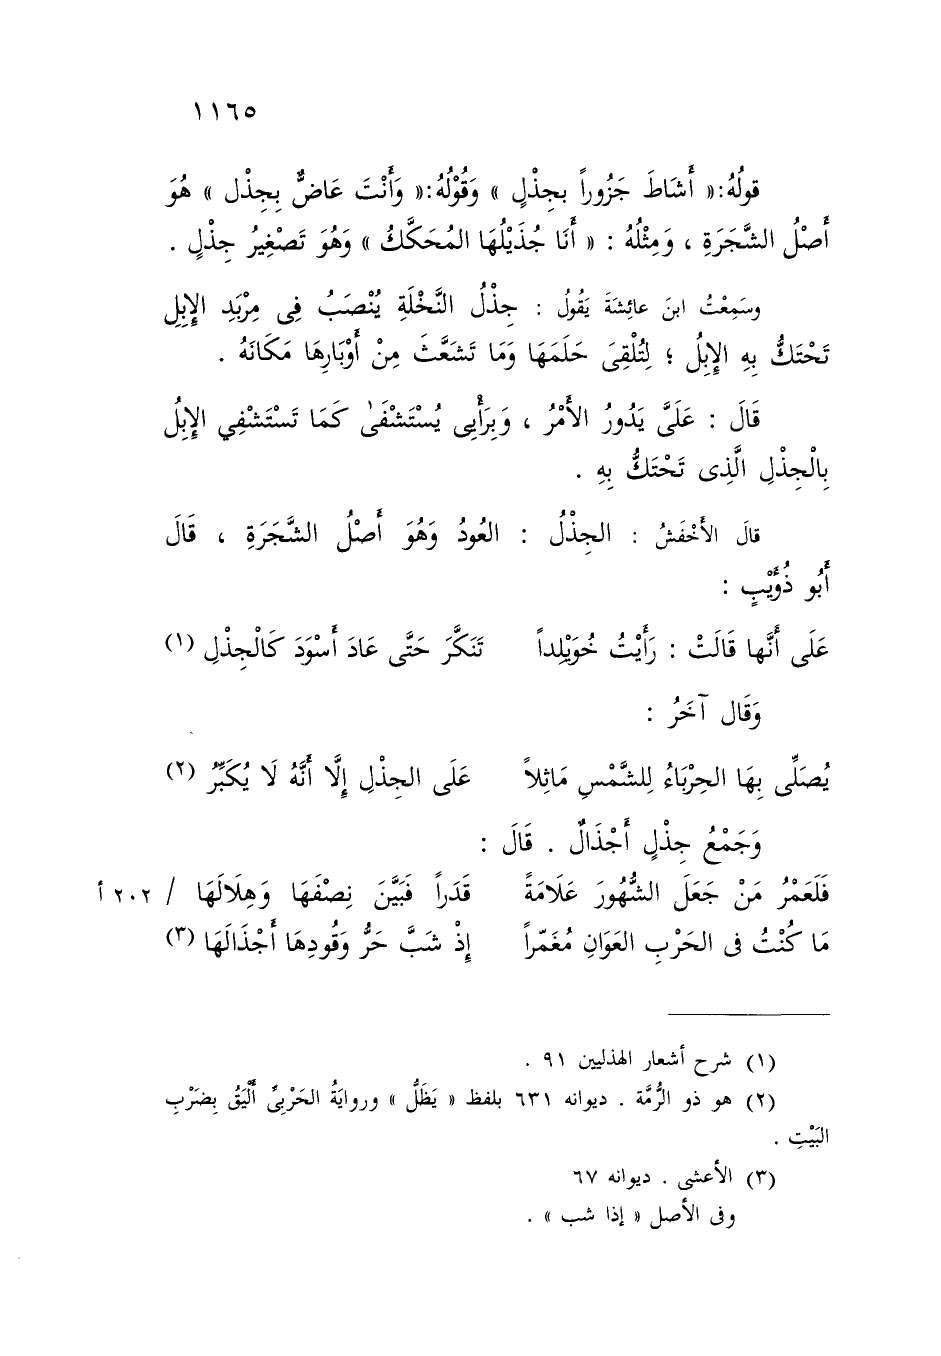 ١١٦٥
قولُهُ:« أَشَاطَ جَزُوراً بجِذْلٍ » وَقُوْلُهُ:« وَأَنْتَ عَاضٌّ بِجِذْل » هُوَ
أَصْلُ الشَّجَرَةِ ، وَمِثْلُهُ : « أَنَا جُذَيْلُهَا المُحَكَّكُ » وَهُوَ تَصْغِيرُ جِذْلٍ .
وسَمِعْتُ ابنَ عائِشَةَ يَقُولُ : جِذْلُ النَّخْلَةِ يُنْصَبُ فِى مِرْبَدِ الإِبِلِ
تَحْتَكُّ بِهِ الإِبِلُ ؛ لِتُلْقِىَ حَلَمَهَا وَمَا تَشَعَّثَ مِنْ أَوْبَارِهَا مَكَانَهُ .
قَالَ : عَلَىَّ يَدُورُ الأَمْرُ ، وَبِرَأْيِى يُسْتَشْفَىٰ كَمَا تَسْتَشْفِي الإِبِلُ
بِالْجِذْلِ الَّذِى تَحْتَكُّ بِهِ .
قالَ الأَخْفَشُ : الجِذْلُ : العُودُ وَهُوَ أَصْلُ الشَّجَرَةِ ، قَالَ
أَبُو ذُؤَيْبٍ :
عَلَى أَنَّها قَالَتْ : رَأَيْتُ خُوَيْلِداً تَنَكَّرَ حَتَّى عَادَ أَسْوَدَ كَالْجِذْلِ (١)
وَقَال آخَرُ :
يُصَلِّى بِهَا الحِرْبَاءُ لِلشَّمْسِ مَاثِلاً عَلَى الجِذْلِ إِلَّا أَنَّهُ لَا يُكَبِّرُ (٢)
وَجَمْعُ جِذْلٍ أَجْذَالٌ . قَالَ :
فَلَعَمْرُ مَنْ جَعَلَ الشُّهُورَ عَلَامَةً قَدَراً فَبَيَّنَ نِصْفَهَا وَهِلَالَهَا / ٢٠٢ أ
مَا كُنْتُ فى الحَرْبِ العَوَانِ مُغَمّراً إِذْ شَبَّ حَرُّ وَقُودِهَا أَجْذَالَهَا (٣)
(١) شرح أشعار الهذليين ٩١ .
(٢) هو ذو الرُّمَّة . ديوانه ٦٣١ بلفظ « يَظَلُّ » وروايَةُ الحَرْبىِّ أَلْيَقُ بِضَرْبِ
البَيْتِ .
(٣) الأعشى . ديوانه ٦٧
وفى الأصل « إذا شب » .